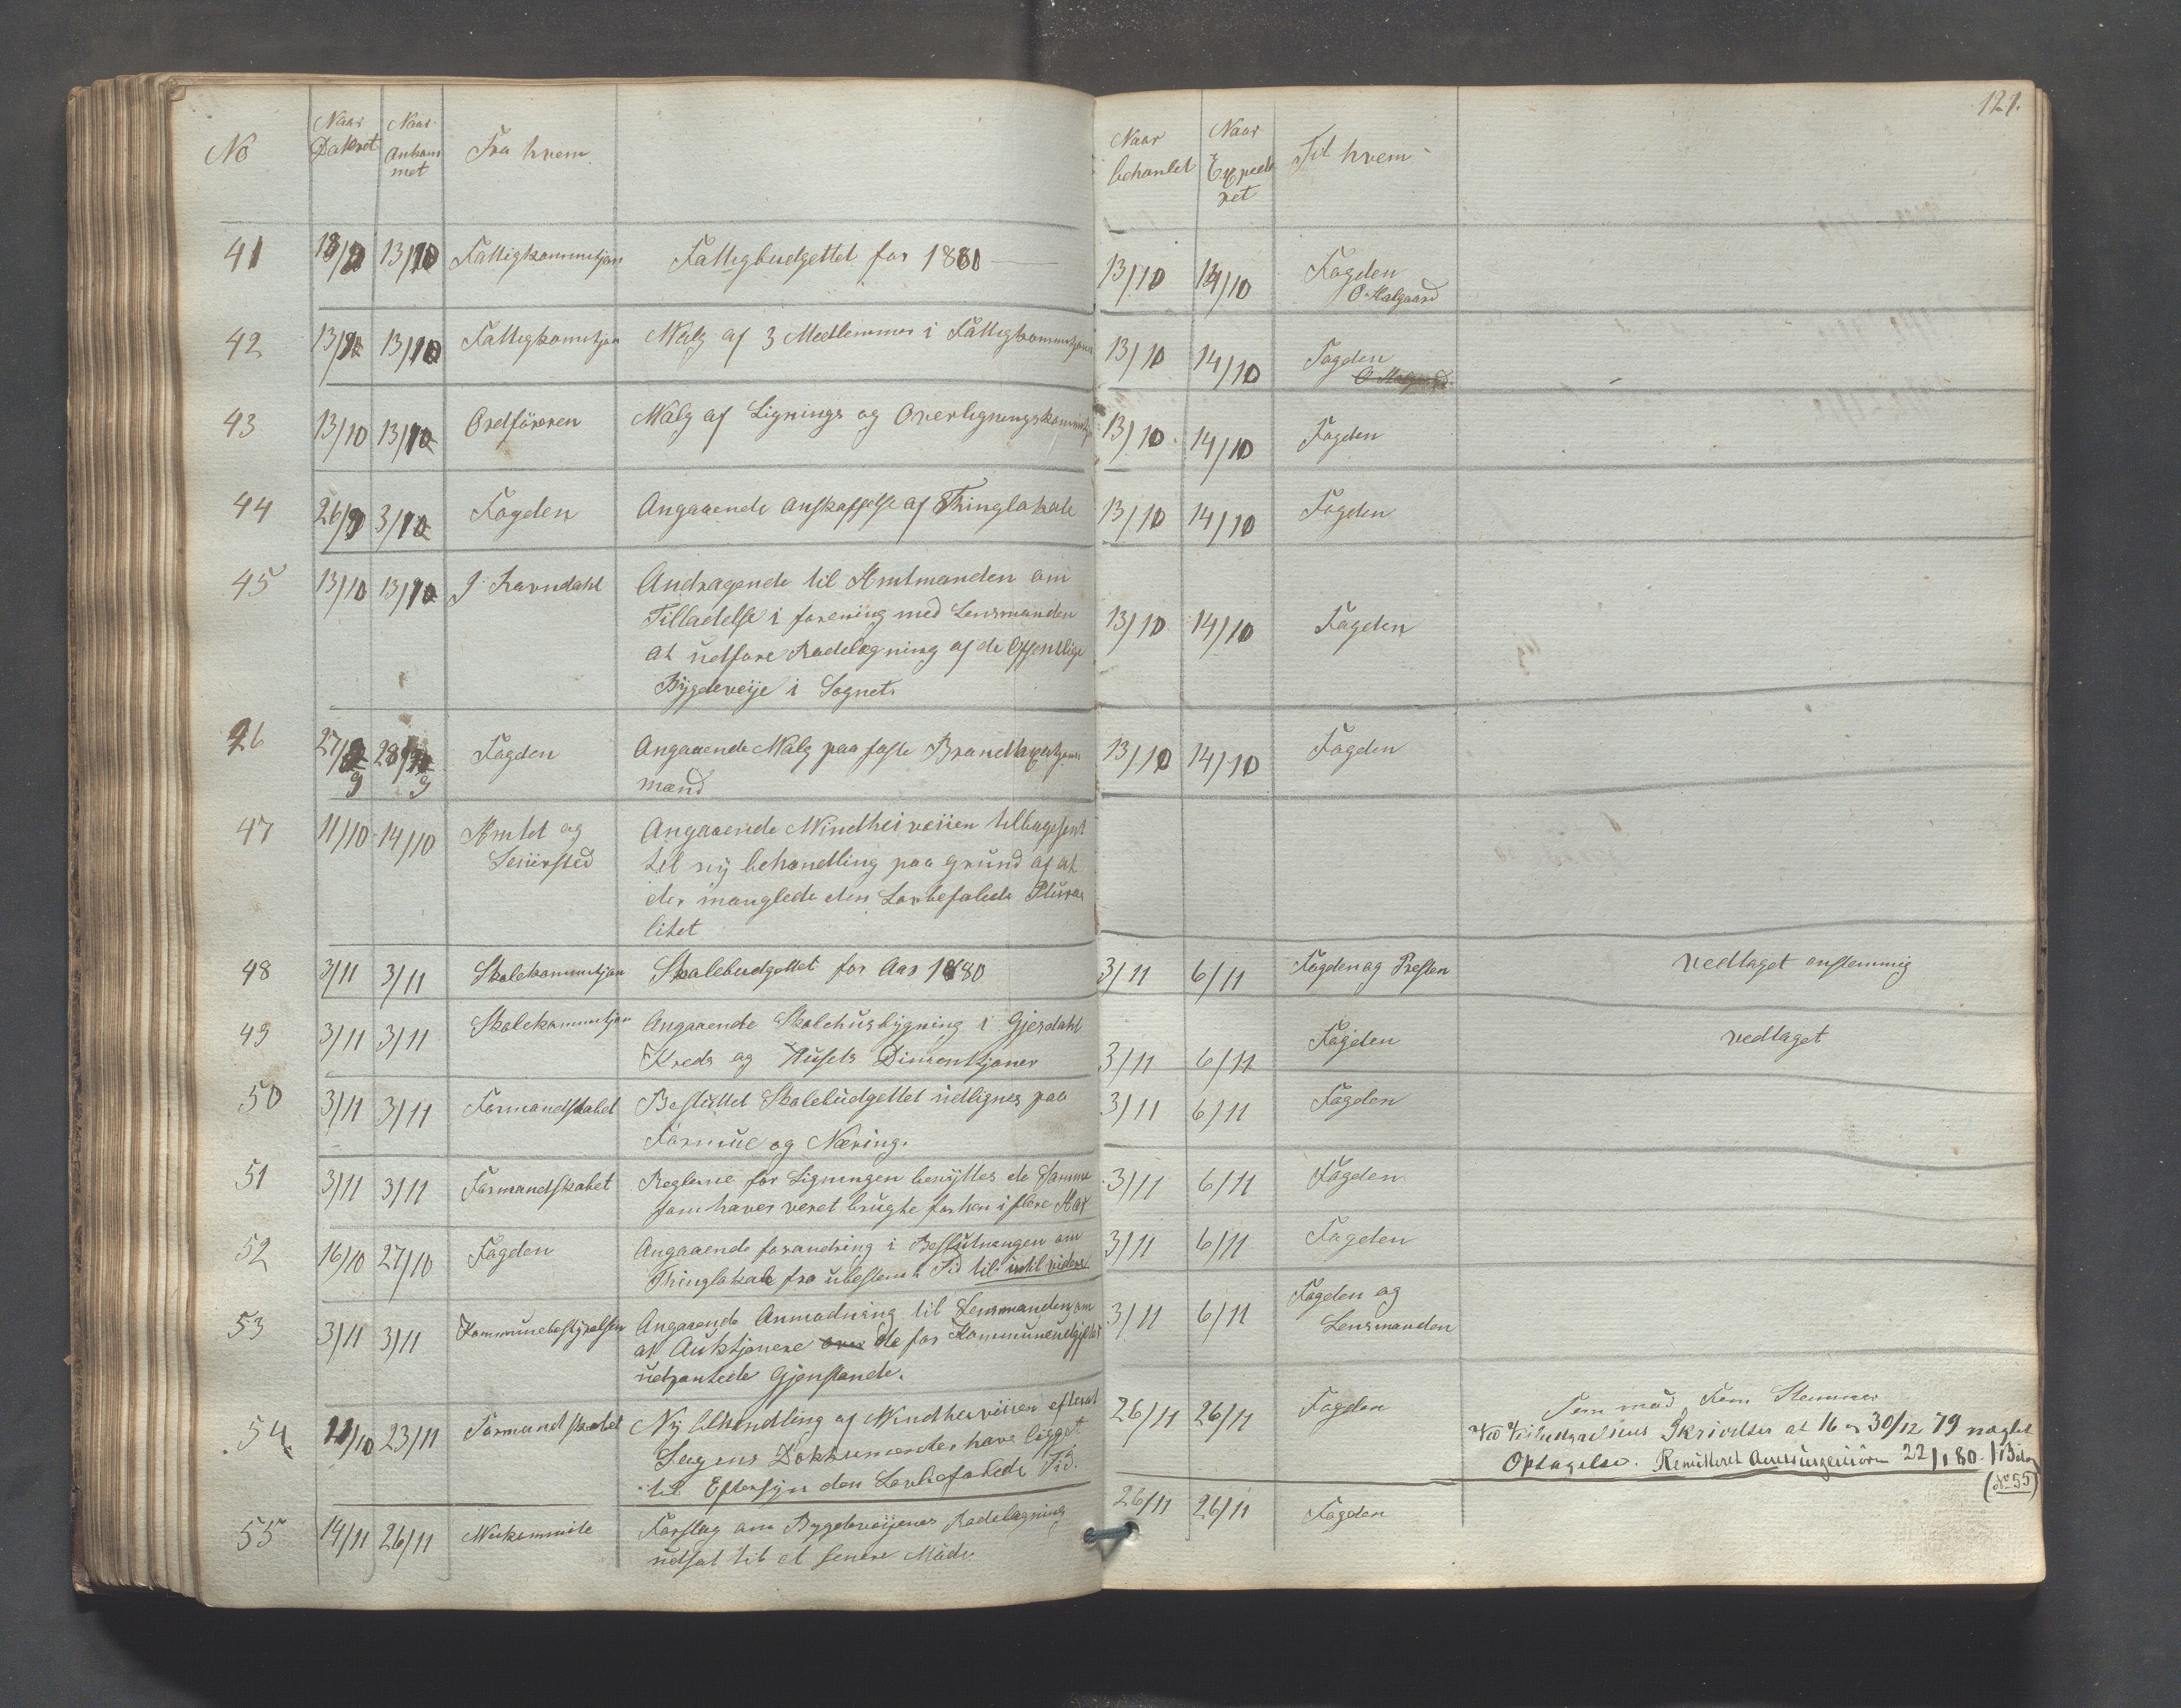 No
Naar Dateret
Naar Ankommet
Fra hvem
Naar behanlet
Naar Expederet
Til hvem
121.
41 13/10 Fattigkommitjon Fattigbudgettet for 1880 13/10 14/10 Fogden
O. Malgaard
42 13/10 Fattigkomitjon Walg af 3 Medlemmer i Fattigkommitjonen 13/10 14/10 Fogden
43 13/10 13/10 Ordföreren Walg af Lignings og Overligningskommitjon 13/10 14/10 Fogden
44 26/9 3/10 Fogden Angaaende anskaffelse af Thinglokale 13/10 14/10 Fogden
45 13/10 13/10 J. Ravndahl Andragende til Amtmanden om
Tilladelse i forening med Lensmanden 13/10 14/10 Fogden
at udføre Rodelægning af de Offentlige
Bygdeveije i Sognet.
46 27/9 28/9 Fogden Angaaende Walg paa faste Brandtaxtjons 13/10 14/10 Fogden
mænd
47 11/10 14/10 Amtet og Angaaende Windheiveiien tilbagesent
Seiersted til ny behandling paa grund af at
der manglede den Lovbefalede Plura
litet
48 3/11 3/11 Skolekommitjon Skolebudgettet for Aar 1880 3/11 6/11 Fogden og Presten vedtaget enstemmig
49 3/11 3/11 Skolekommitjon Angaaende Skolehusbygning i Gjesdahl
Kreds og Husets Dimentjoner 3/11 6/11 Fogden vedtaget
50 3/11 3/11 Formandskabet Besluttet Skolebudgettet udlignes paa 3/11 6/11 Fogden
Formue og Næring.
51 3/11 3/11 Formandskabet Reglerne for Ligningen benyttes de Samme 3/11 6/11 Fogden
som haver veret brugte forhen i flere Aar
52 16/10 27/10 Fogden Angaaende forandring i Beslutningen om 3/11 6/11 Fogden
Thinglokale fra ubestemt Tid til indtil videre
53 3/11 3/11 Kommunebestyrelsen Angaaende Anmodning til Lensmanden om 3/11 6/11 Fogden og
at Auktjonere over de for Kommuneudgifter Lensmanden
udpantede Gjenstande.
54 11/10 23/11 Formandskabet Ny behandling af Windheiveiien efterat 26/11 26/11 Fogden Fem mod Fem Stemmer
Sagens Dokkumenter have ligget
til Eftersyn den Lovbefalede Tid.
Ved Skrivelser at 16 og 30/12 79 nægtet
Optagelse. Remitteret 22/1 80.
(No 55)
55 14/11 26/11 Veikommite Forslag om Bygdeveijenes Rodelægning 26/11 26/11 Fogden
udsat til et senere Möde